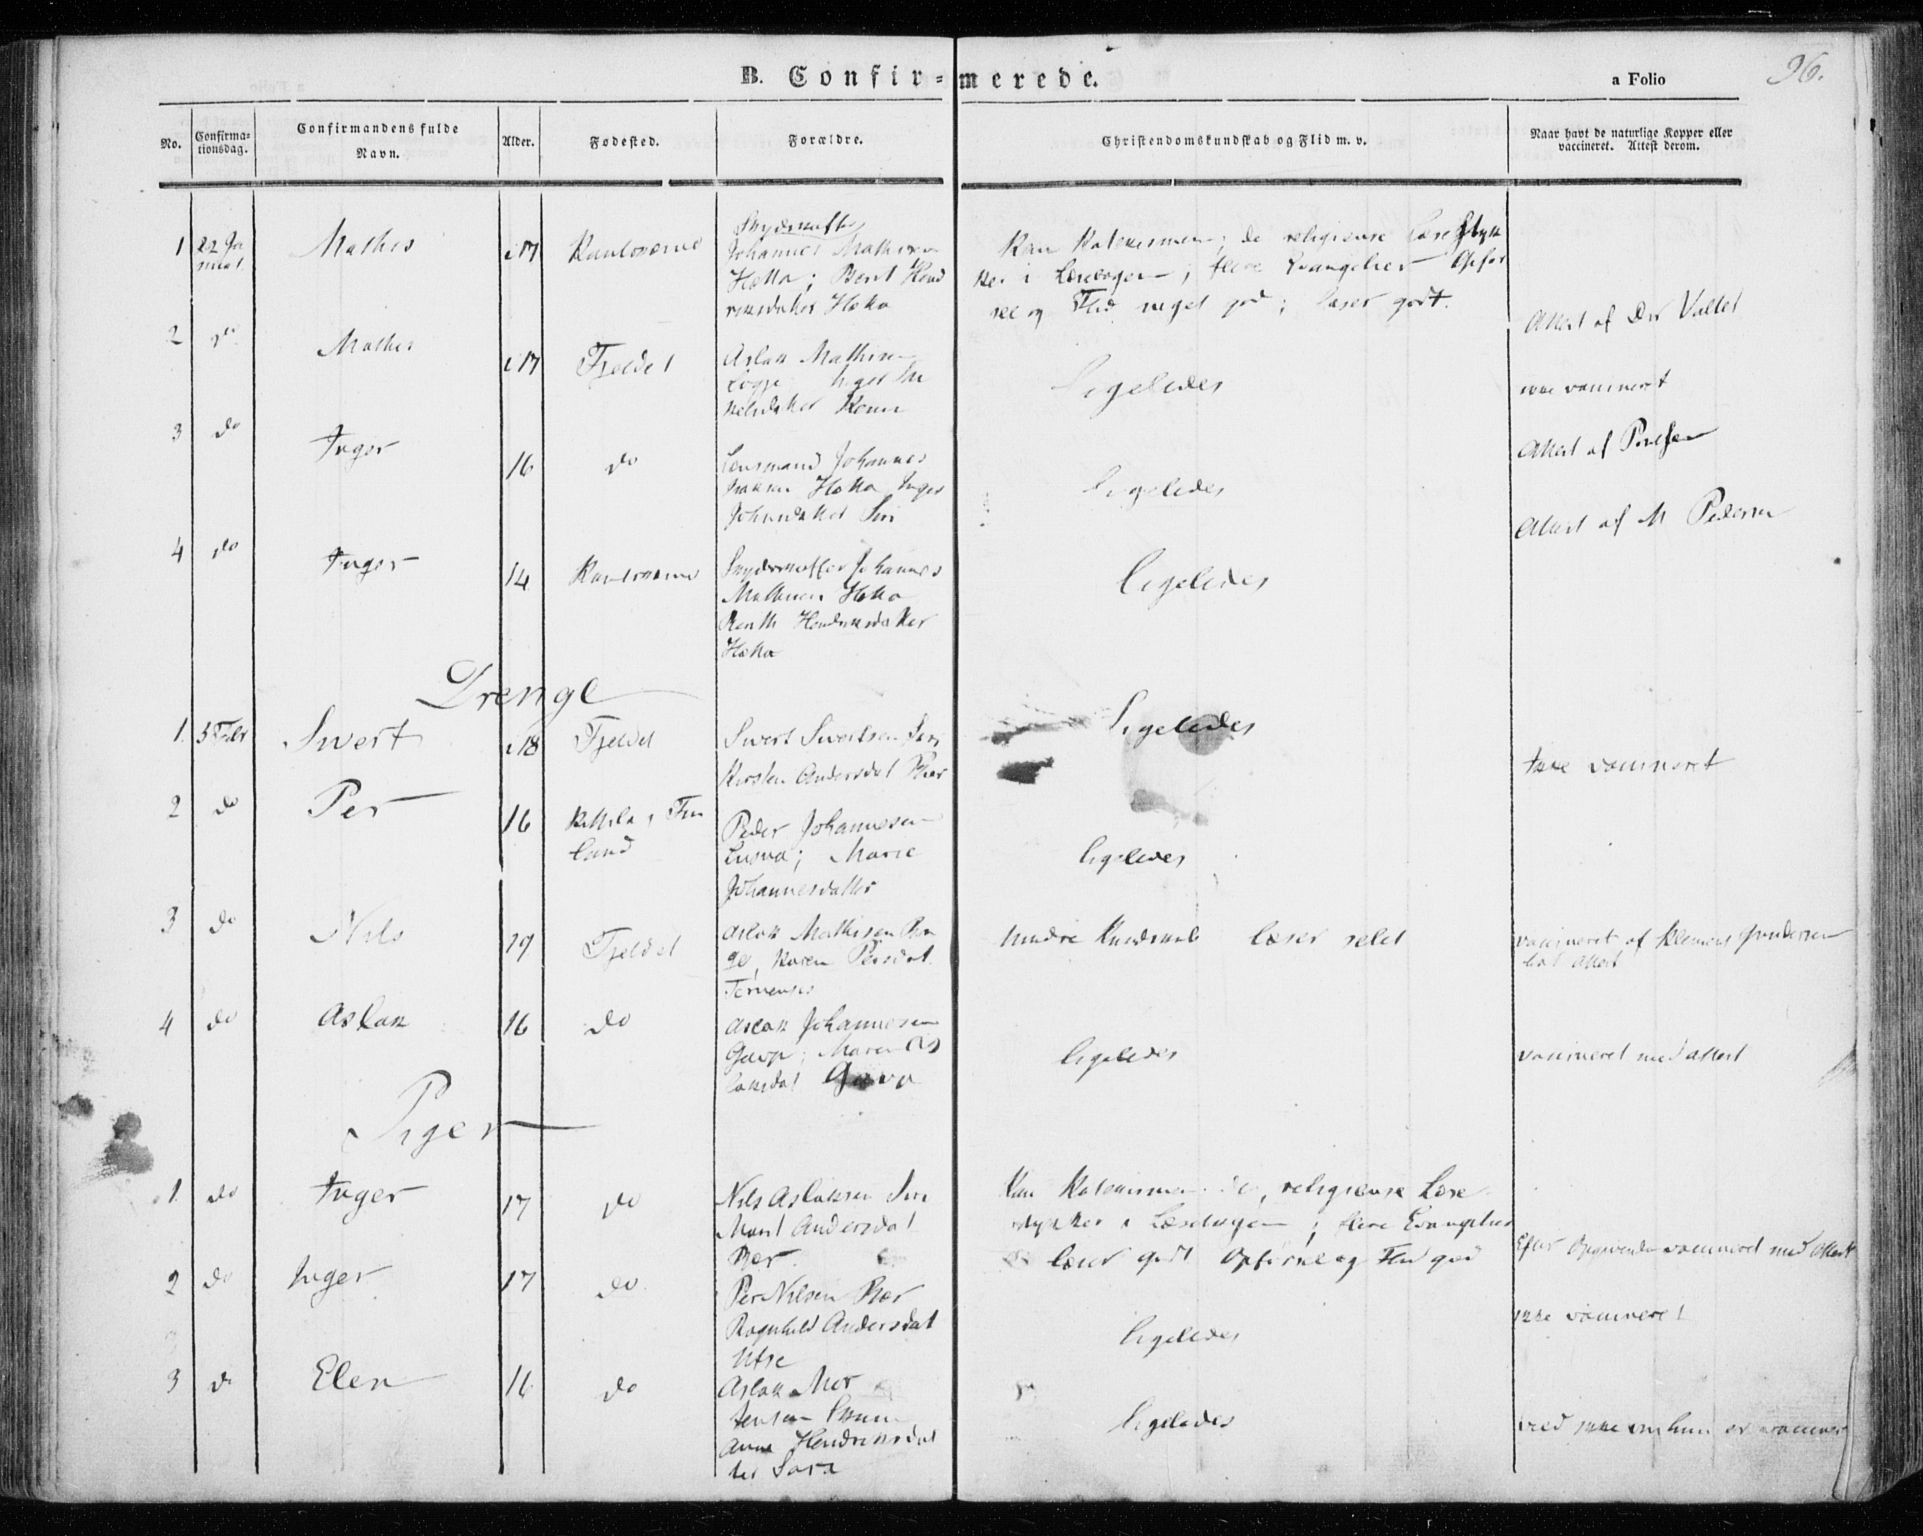 B. Confir- merede.
a Folio
96.
No.
Confirma-
tionsdag.
Confirmandens fulde
Navn.
Alder.
Fødested.
Forældre.
Christendomskundskab og Flid m. v.
Naar havt de naturlige Kopper eller
vaccineret. Attest derom.
1 22 Ja
Mathis
17
Johannes Mathisen
Hætta; Berit Hend
riksdatter Hætta
de religieuse Læsestyk
ker i Læsebogen; flere Evangelier Opfør
sel og Flid meget god; læser godt.
Attest af
2 do
Mathis
17
Fjeldet
Aslak Mathisen
Inger
ligeledes
ikke vaccineret
3 do
Inger
16
do
Lensmand Johannes
Hætta Inger
Johnsdatter Siri
ligeledes
Attest af
4 do
Inger
14
Johannes
Mathisen Hætta
Henriksdatter
Hætta
ligeledes
Attest af M Pedersen
Drenge
1. 5 Febr
Sivert
18
Fjeldet
Sivert Sivertsen
Kirsten Andersdat Bær
ligeledes
Ikke vaccineret
2 do
Per
16
Kittila i Fin
land
Peder Johannesen
Marie
Johannesdatter
ligeledes
3 do
Nils
19
Fjeldet
Aslak Mathisen
Karen Persdat.
Mindre Kundskab læser slet
vaccineret af Klemens Gundersen
Attest
4 do
Aslak
16
do
Aslak Johannesen
Gavp; Maren As
laksdat Gavp
ligeledes
vaccineret med attest
Piger
1. do
Inger
17
do
Nils Aslaksen Siri
Marit Andersdat
Bær.
Kan religieuse Læse
stykker i Læsebogen; flere Evangelier
læser godt Opførsel og Flid god
Efter Opgivende vaccineret med Attest
2 do
Inger
17
do
Per Nilsen Bær
Ragnhild Andersdat
Utse
ligeledes
ikke vaccineret
3 do
Elen
16
do
Aslak Mor
tensen
Anne Hendriksdat
ter Sara
ligeledes
ved ikke om hun er vaccineret